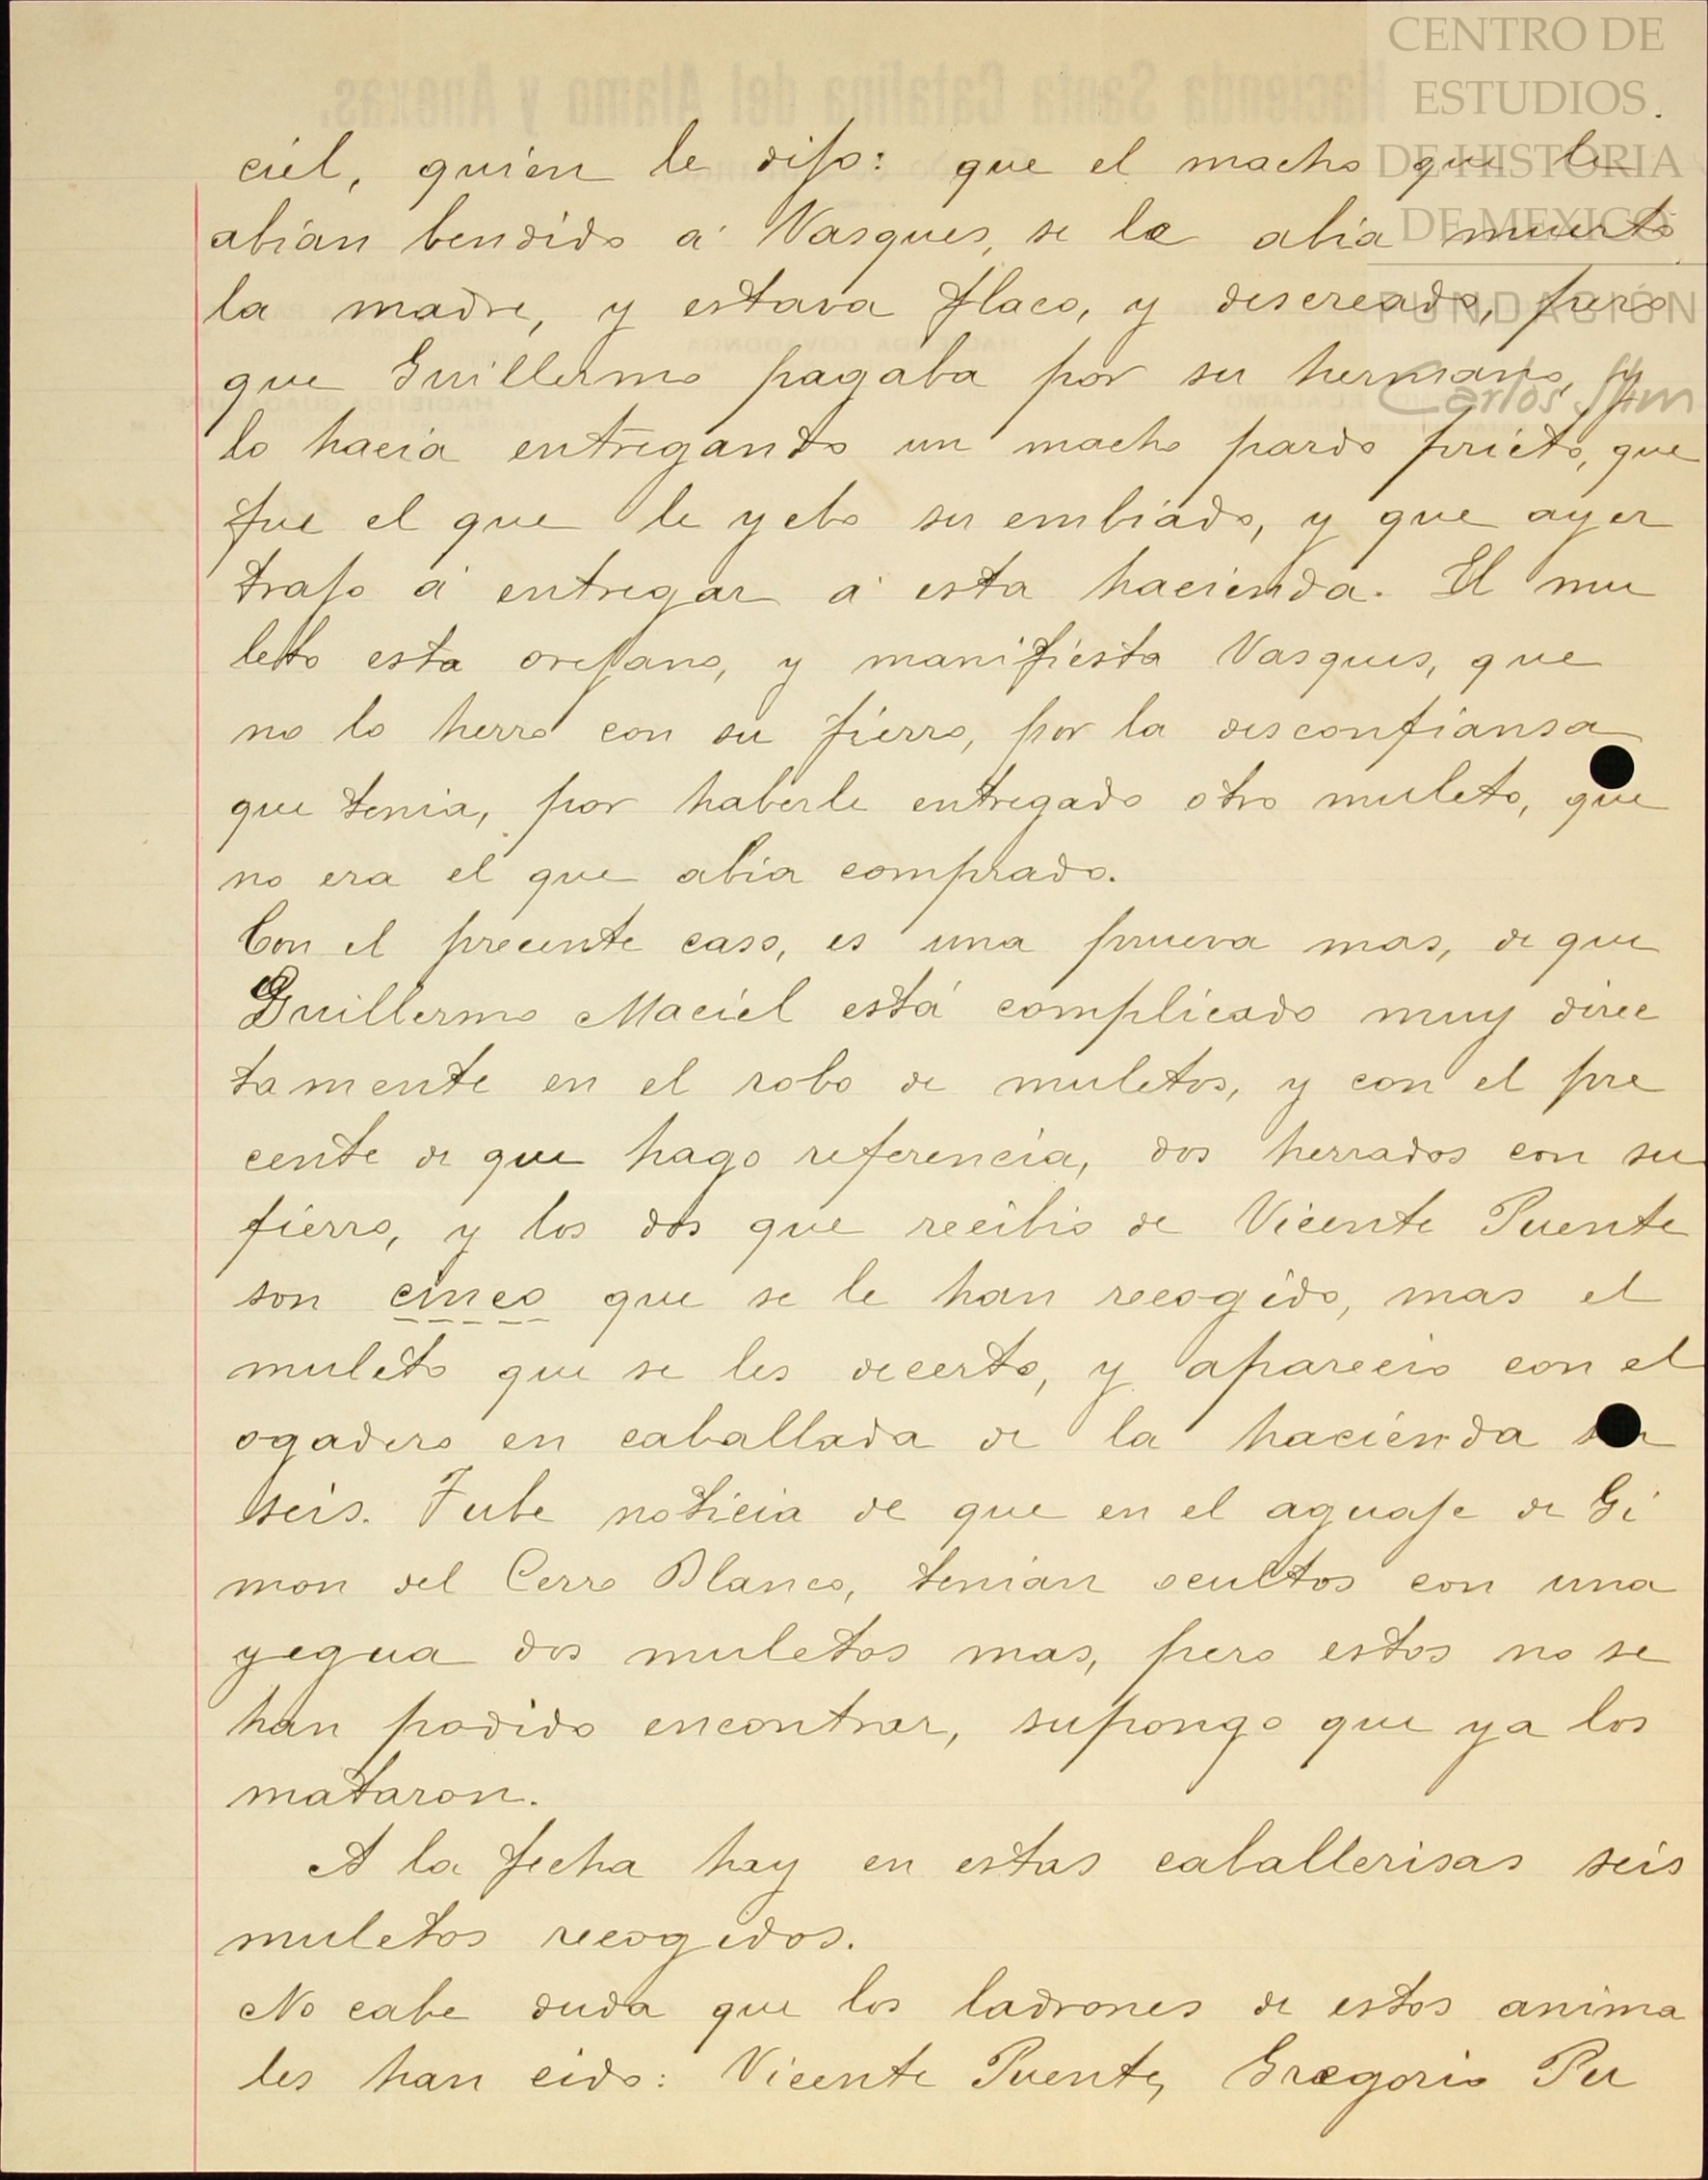 Hacienda Santa Catalina del Alamo y Anexas.
CENTRO DE
ESTUDIOS
DE HISTORIA
DE MEXICO
FUNDACIÓN
Carlos Slim
ciel, quien le dijo: que el macho que le
abian bendido á Vasques, se le abia muerto
la madre, y estava flaco, y descreado, pero
que Guillermo pagaba por su hermano, y
lo hacia entregando un macho pardo prieto, que
fue el que le yebo su embiado, y que ayer
trajo á entregar á esta hacienda. El mu
leto esta orejano, y manifiesta Vasques, que
no lo herro con su fierro, por la desconfiansa
que tenia, por haberle entregado otro muleto, que
no era el que abia comprado.
Con el precente caso, es una prueva mas, de que
Guillermo Maciel está complicado muy direc
tamente en el robo de muletos, y con el pre
cente de que hago referencia, dos herrados con su
fierro, y los dos que recibio de Vicente Puente
son cinco que se le han recogido, mas el
muleto que se les decerto, y aparecio con el
ogadero en caballada de la hacienda
seis. Tube noticia de que en el aguaje de Gi
mon del Cerro Blanco, tenian ocultos con una
yegua dos muletos mas, pero estos no se
han podido encontrar, supongo que ya los
mataron.
A la fecha hay en estas caballerisas seis
muletos recogidos.
No cabe duda que los ladrones de estos anima
les han cido: Vicente Puente, Gregorio Pu